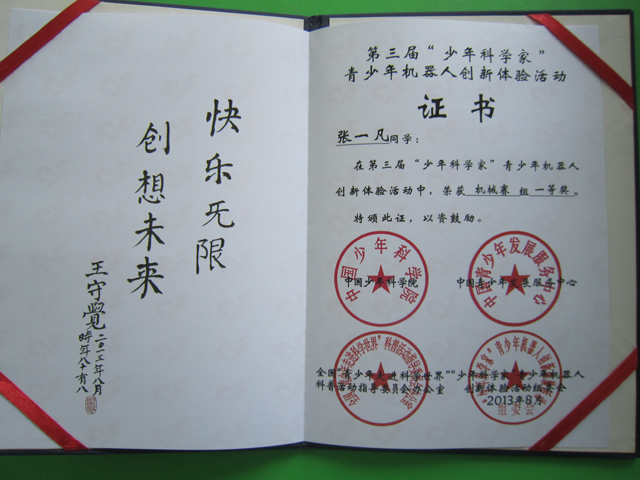 快乐无限
创想未来
王守覺二〇一三年八月
時年八十有八
第三届“少年科学家”
青少年机器人创新体验活动
证书
张一凡同学：
在第三届“少年科学家”青少年机器人
创新体验活动中，荣获 机械赛 组 一等奖。
特颁此证，以资鼓励。
中国少年科学院
中国少年科学院
中国青少年发展服务中心
中国青少年发展服务中心
全国“青少年走进科学世界”
科普活动指导委员会办公室
“少年科学家”青少年机器人
创新体验活动组委会
组委会
2013年8月